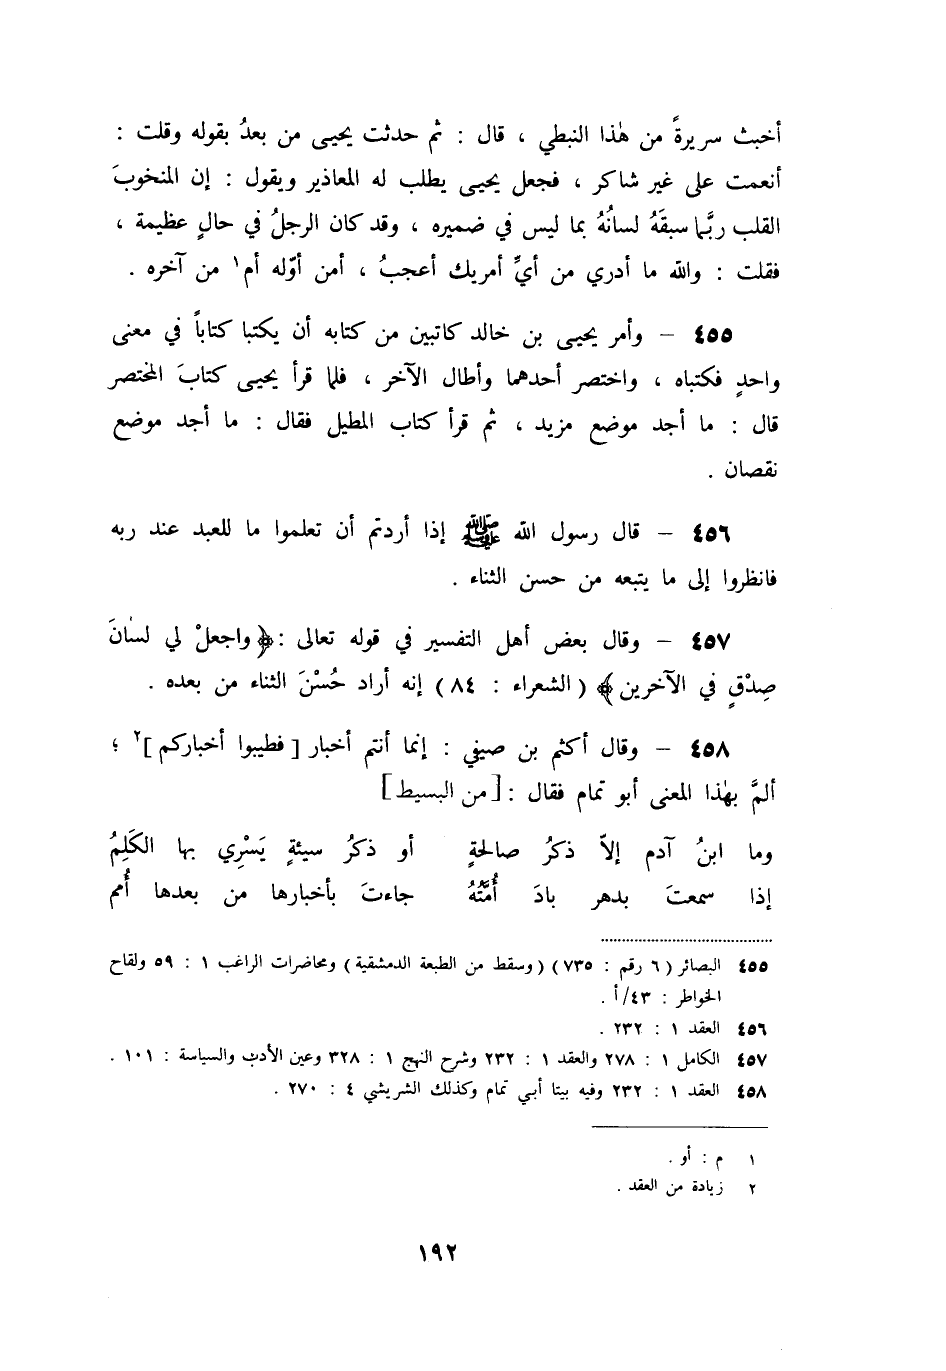 أخبث سريرةً من هٰذا النبطي ، قال : ثم حدثت يحيى من بعدُ بقوله وقلت :
أنعمت على غير شاكر ، فجعل يحيى يطلب له المعاذير ويقول : إن المنخوبَ
القلب ربَّما سبقَهُ لسانُهُ بما ليس في ضميره ، وقد كان الرجلُ في حالٍ عظيمة ،
فقلت : والله ما أدري من أيِّ أمريك أعجبُ ، أمن أوّله أم١ من آخره .
٤٥٥ – وأمر يحيى بن خالد كاتبين من كتابه أن يكتبا كتاباً في معنى
واحدٍ فكتباه ، واختصر أحدهما وأطال الآخر ، فلما قرأ يحيى كتابَ المختصر
قال : ما أجد موضع مزيد ، ثم قرأ كتاب المطيل فقال : ما أجد موضع
نقصان .
٤٥٦ – قال رسول الله ﷺ إذا أردتم أن تعلموا ما للعبد عند ربه
فانظروا إلى ما يتبعه من حسن الثناء .
٤٥٧ – وقال بعض أهل التفسير في قوله تعالى : ﴿واجعلْ لي لسٰانَ
صِدْقٍ في الآخرين﴾ ( الشعراء : ٨٤ ) إنه أراد حُسْنَ الثناء من بعده .
٤٥٨ – وقال أكثم بن صيفي : إنما أنتم أخبار [ فطيبوا أخباركم ]٢ ؛
ألمَّ بهٰذا المعنى أبو تمام فقال : [من البسيط]
وما ابنُ آدم إلاّ ذكرُ صالحةٍ أو ذكرُ سيئةٍ يَسْرِي بها الكَلِمُ
إذا سمعتَ بدهر بادَ أُمَّتُهُ جاءتَ بأخبارها من بعدها أُمم
٤٥٥ البصائر ( ٦ رقم : ٧٣٥ ) ( وسقط من الطبعة الدمشقية ) ومحاضرات الراغب ١ : ٥٩ ولقاح
الخواطر : ٤٣/أ .
٤٥٦ العقد ١ : ٢٣٢ .
٤٥٧ الكامل ١ : ٢٧٨ والعقد ١ : ٢٣٢ وشرح النهج ١ : ٣٢٨ وعين الأدب والسياسة : ١٠١ .
٤٥٨ العقد ١ : ٢٣٢ وفيه بيتا أبي تمام وكذلك الشريشي ٤ : ٢٧٠ .
١ م : أو .
٢ زيادة من العقد .
١٩٢